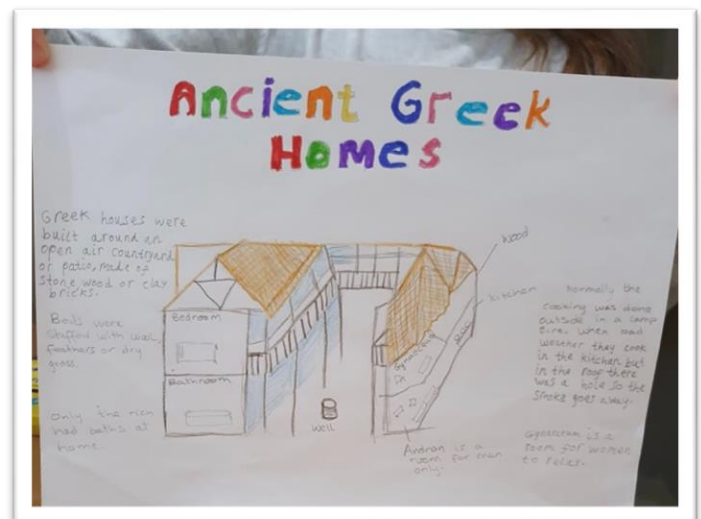 Ancient Greek
Homes
Greek houses were
built around an
open air countryard
or patio, made of
stone wood or clay
bricks.
Beds were
stuffed with wool,
feathers or dry
grass.
Only the rich
had baths at
home.
Bedroom
Bathroom
well
wood
kitchen
Andron is a
room for men
only.
Normally the
cooking was done
outside in a camp
fire. when
weather they cook
in the kitchen but
in the roof there
was a hole so the
smoke goes away.
is a
room for women
to relax.